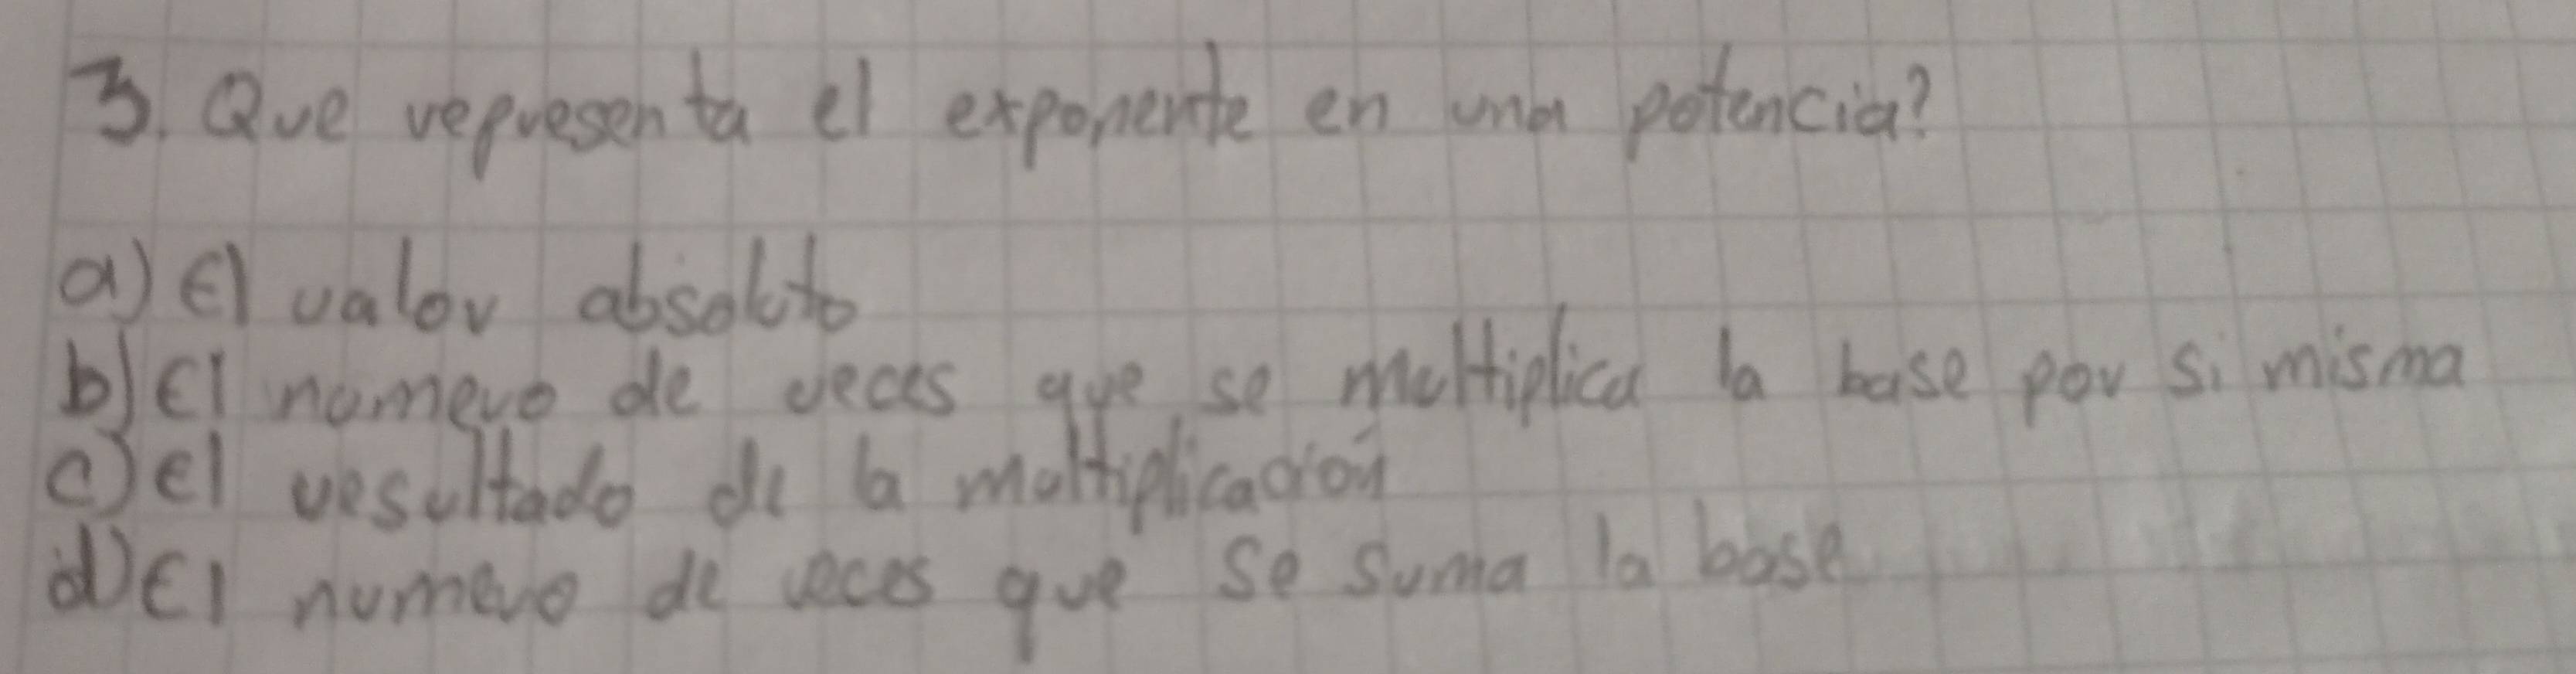 3. Que representa el exponente en una potencia?
a) El valor absoluto
b) El numero de veces que se multiplica la base por si misma
c) el resultado de la multiplicación
d) El numero de veces que se suma la base